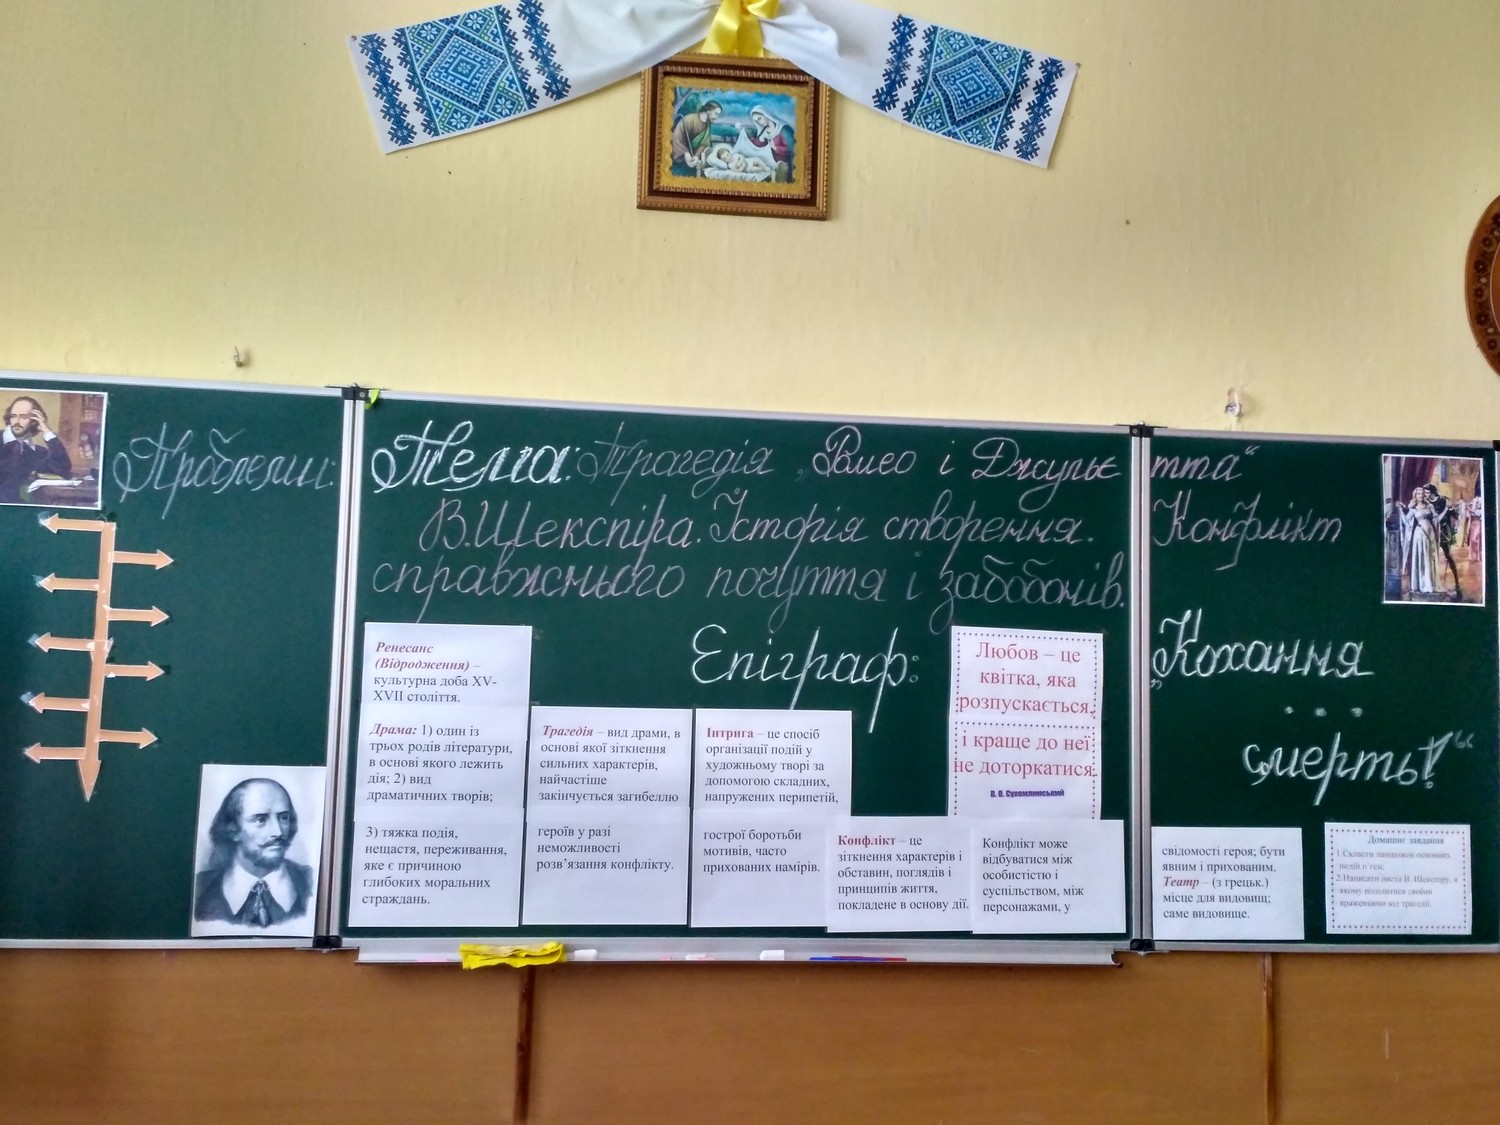 Проблеми:
Тема: Трагедія „Ромео і Джульєтта“
В.Шекспіра. Історія створення. Конфлікт
справжнього почуття і забобонів.
Епіграф:
Любов – це
квітка, яка
розпускається,
і краще до неї
не доторкатися.
В. О. Сухомлинський
„Кохання
...
смерть!“
Ренесанс
(Відродження) –
культурна доба XV-
XVII століття.
Драма: 1) один із
трьох родів літератури,
в основі якого лежить
дія; 2) вид
драматичних творів;
3) тяжка подія,
нещастя, переживання,
яке є причиною
глибоких моральних
страждань.
Трагедія – вид драми, в
основі якої зіткнення
сильних характерів,
найчастіше
закінчується загибеллю
героїв у разі
неможливості
розв’язання конфлікту.
Інтрига – це спосіб
організації подій у
художньому творі за
допомогою складних,
напружених перипетій,
гострої боротьби
мотивів, часто
прихованих намірів.
Конфлікт – це
зіткнення характерів і
обставин, поглядів і
принципів життя,
покладене в основу дії.
Конфлікт може
відбуватися між
особистістю і
суспільством, між
персонажами, у
свідомості героя; бути
явним і прихованим.
Театр – (з грецьк.)
місце для видовищ;
саме видовище.
Домашнє завдання
1.Скласти ланцюжок основних
подій п’єси;
2.Написати листа В. Шекспіру, в
якому поділитися своїми
враженнями від трагедії.